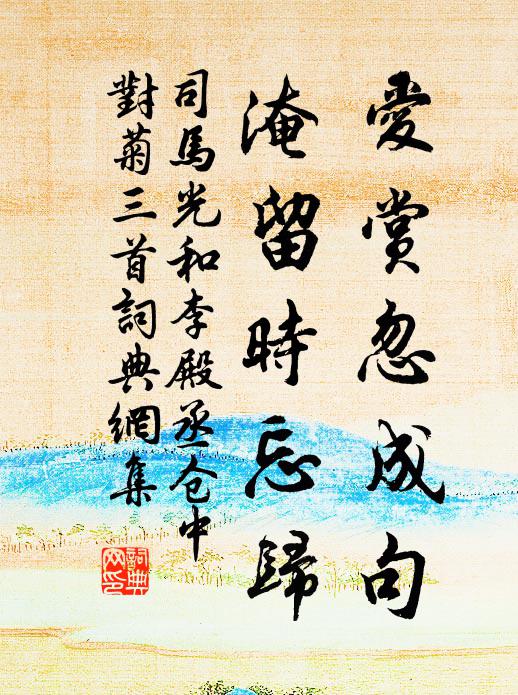 愛賞忽成句
淹留時忘歸
司馬光和李殿丞仓中
對菊三首詞典網集
詞典
网印